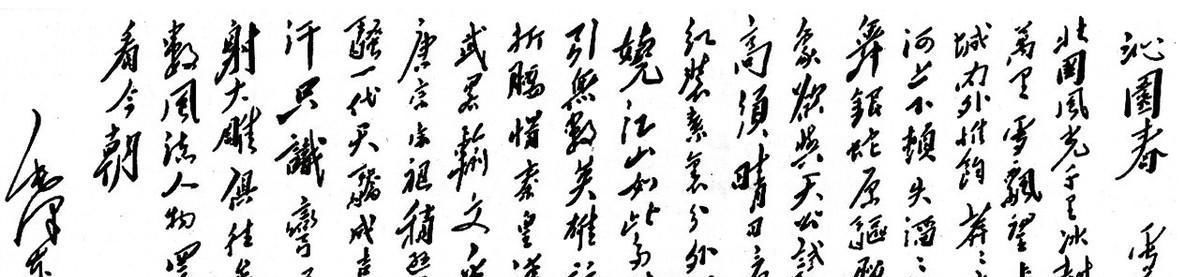 沁園春 雪
北國風光千里冰封
萬里雪飄望長
城內外惟餘莽〻
河上下頓失滔〻
舞銀蛇原驅
象欲與天公試
高須晴日看
紅裝素裹分外
嬈江山如此多
引無數英雄競
折腰惜秦皇漢
武略輸文采
唐宗宋祖稍遜
騷一代天驕成吉
汗只識彎弓
射大雕俱往矣
數風流人物還
看今朝
毛澤東